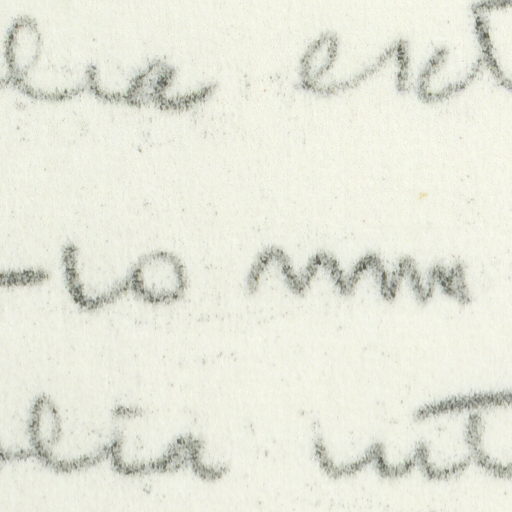 lia ext
-10 mm
lia int